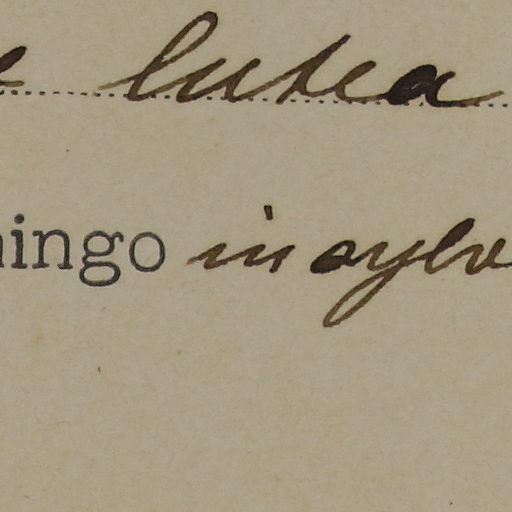 e lutea
ingo in oylo